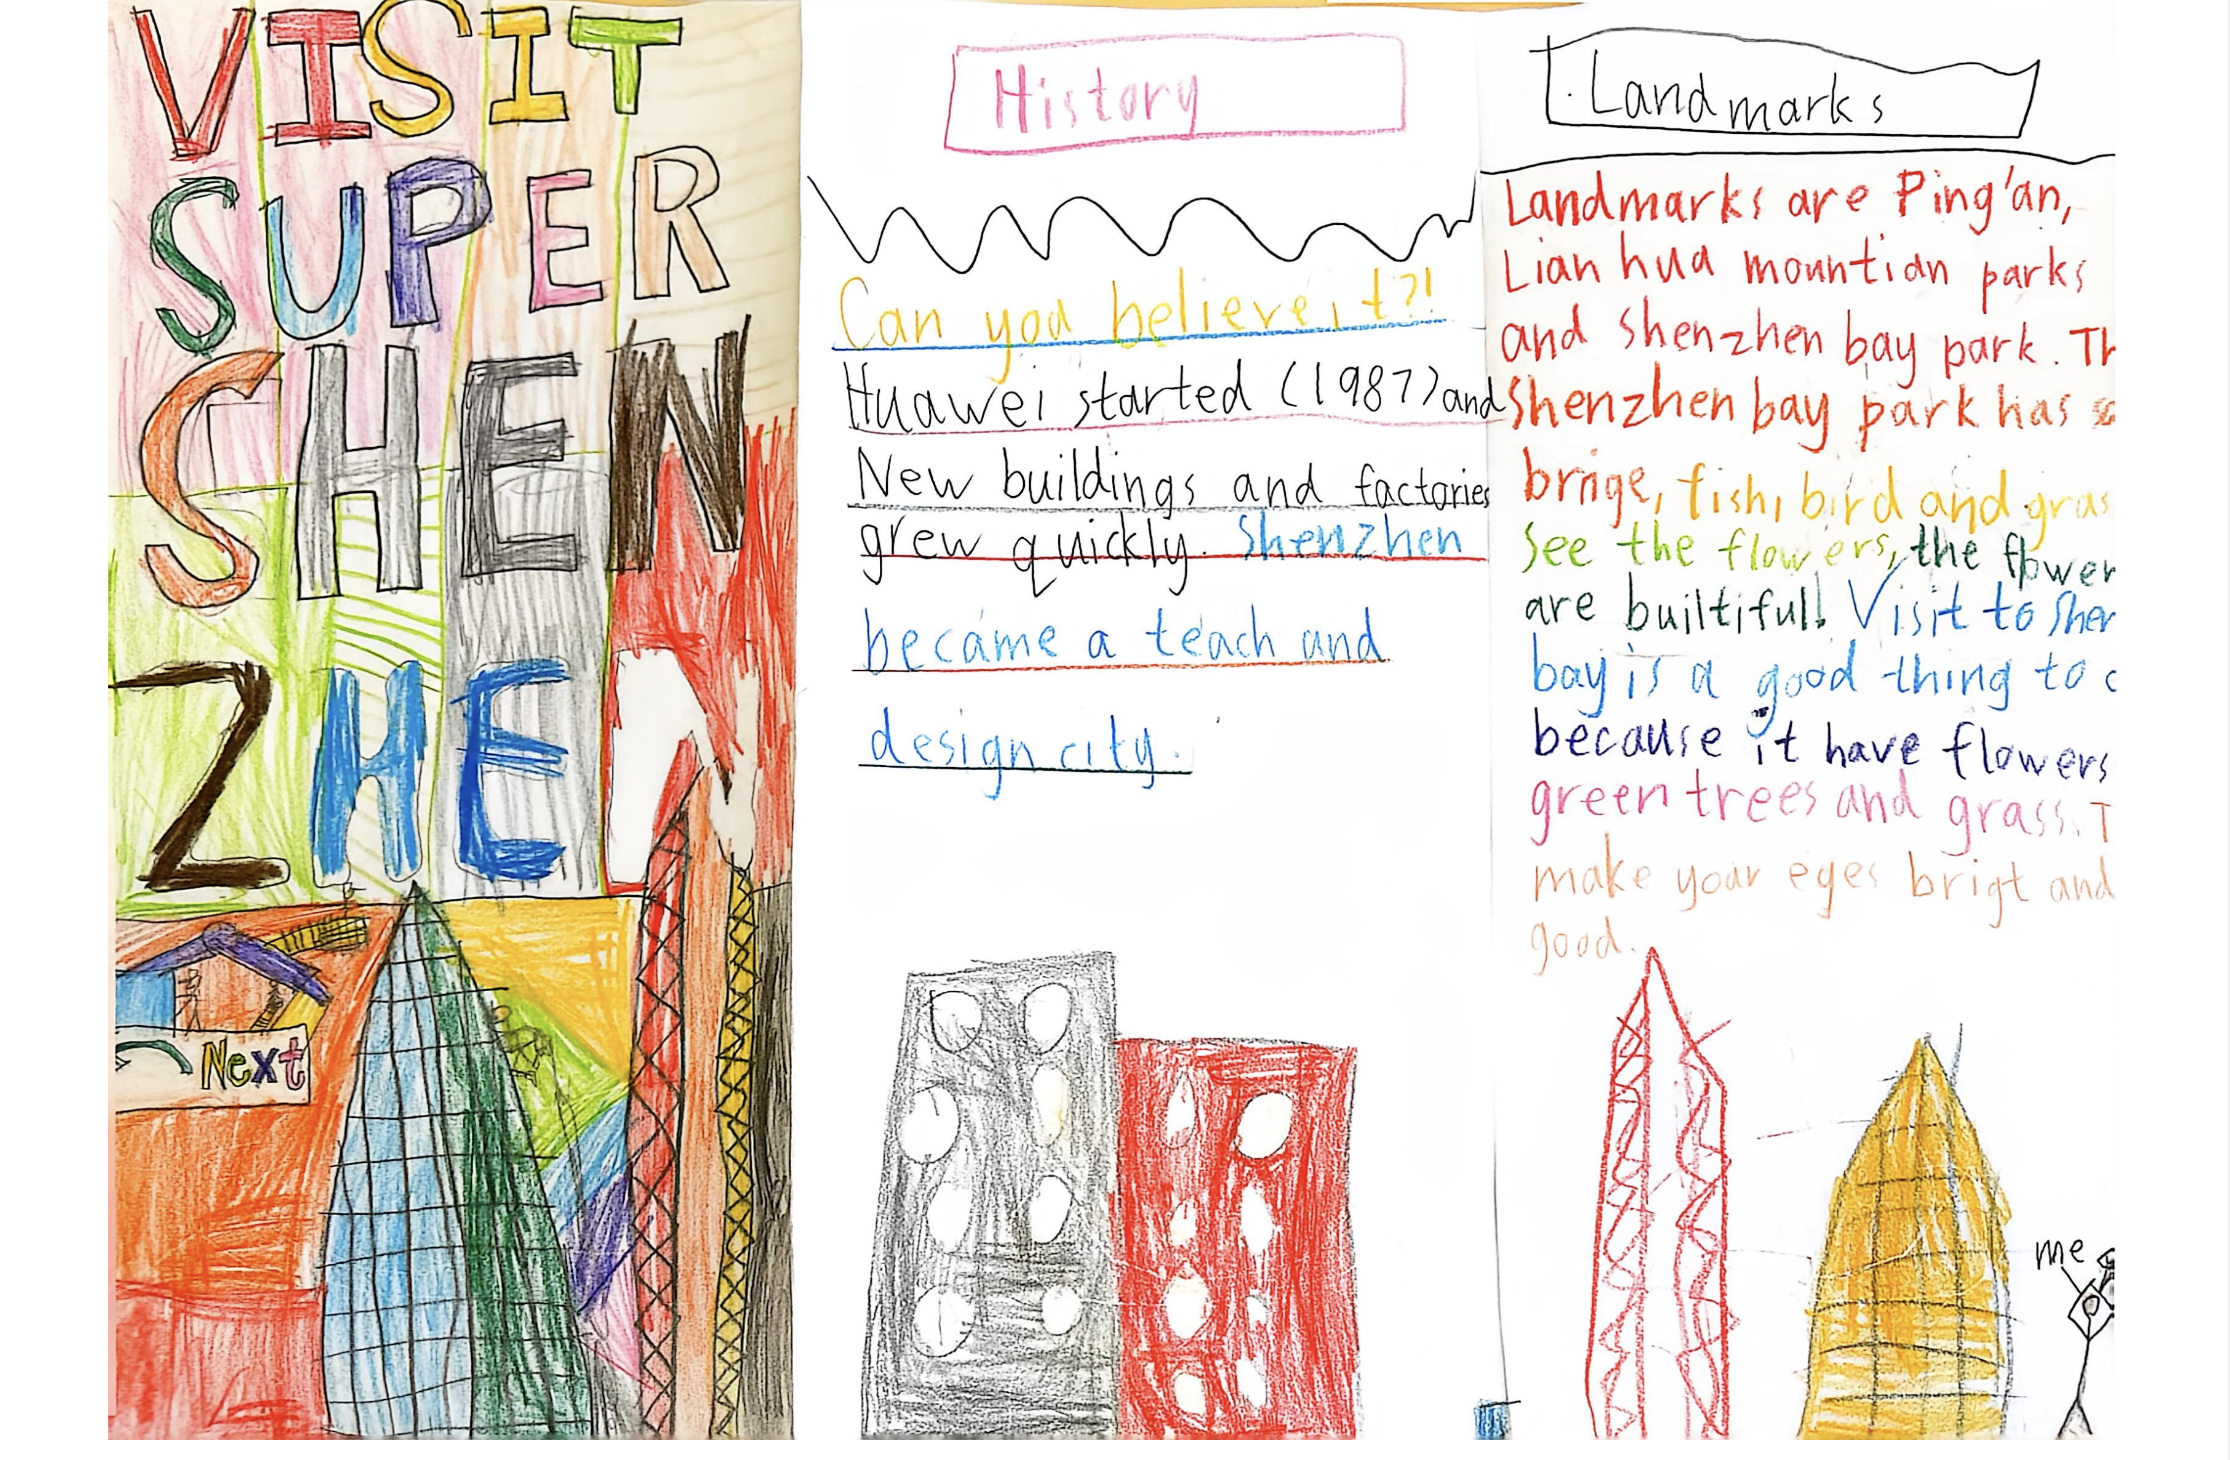 VISIT
SUPER
SHEN
ZHEN
Next
History
Can you believe it?!
Huawei started (1987) and
New buildings and factories
grew quickly. Shenzhen
became a teach and
design city.
Landmarks
Landmarks are Ping'an,
Lian hua mountian parks
and shenzhen bay park. Th
Shenzhen bay park has
brige, fish, bird and gras
See the flowers, the flower
are builtiful! Visit to Shen
bay is a good thing to
because it have flowers
green trees and grass. T
make your eyes brigt and
good.
me